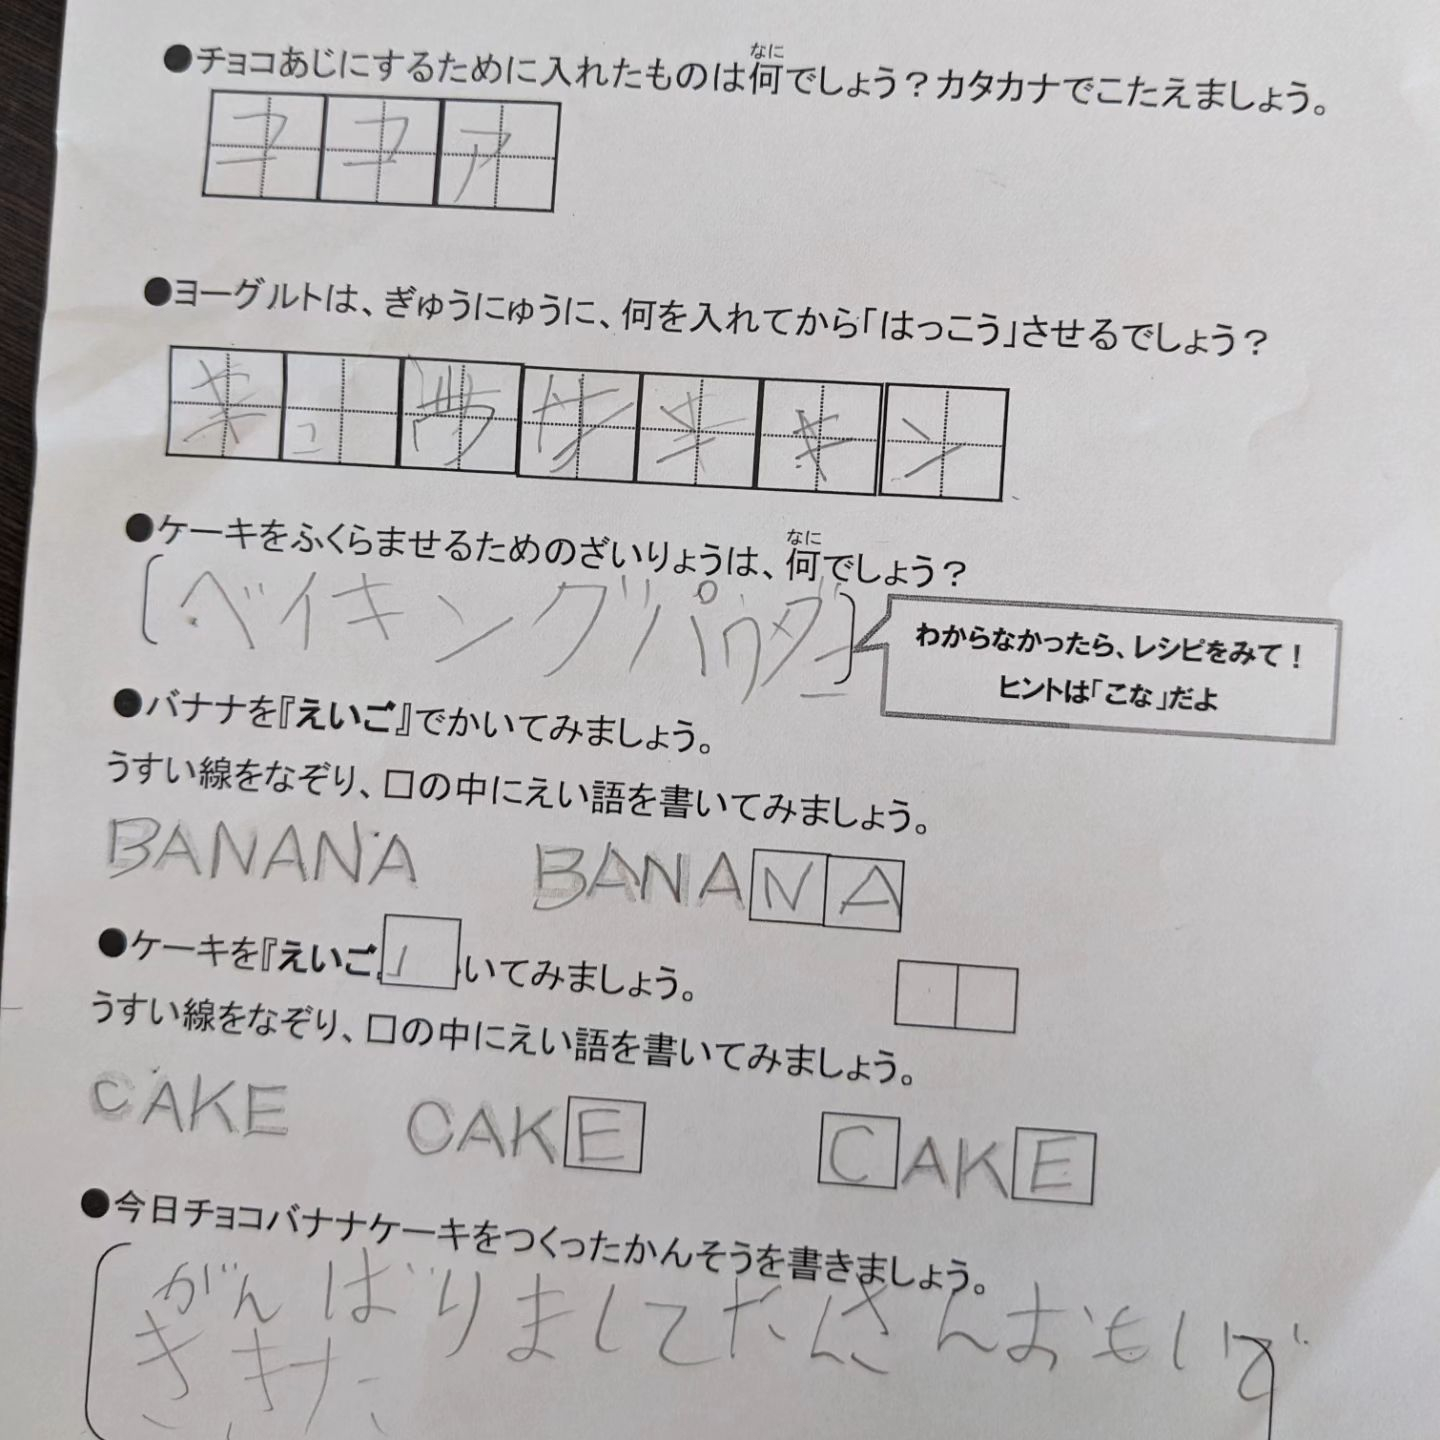 ●チョコあじにするために入れたものは何でしょう？カタカナでこたえましょう。
なに
ココア
●ヨーグルトは、ぎゅうにゅうに、何を入れてから「はっこう」させるでしょう？
キン
●ケーキをふくらませるためのざいりょうは、何でしょう？
なに
ベイキングパウダー
わからなかったら、レシピをみて！
ヒントは「こな」だよ
●バナナを『えいご』でかいてみましょう。
うすい線をなぞり、口の中にえい語を書いてみましょう。
BANANA BANANA
●ケーキを『えいご いてみましょう。
うすい線をなぞり、口の中にえい語を書いてみましょう。
CAKE CAKE CAKE
●今日チョコバナナケーキをつくったかんそうを書きましょう。
がんばりましてたくさんおもいで